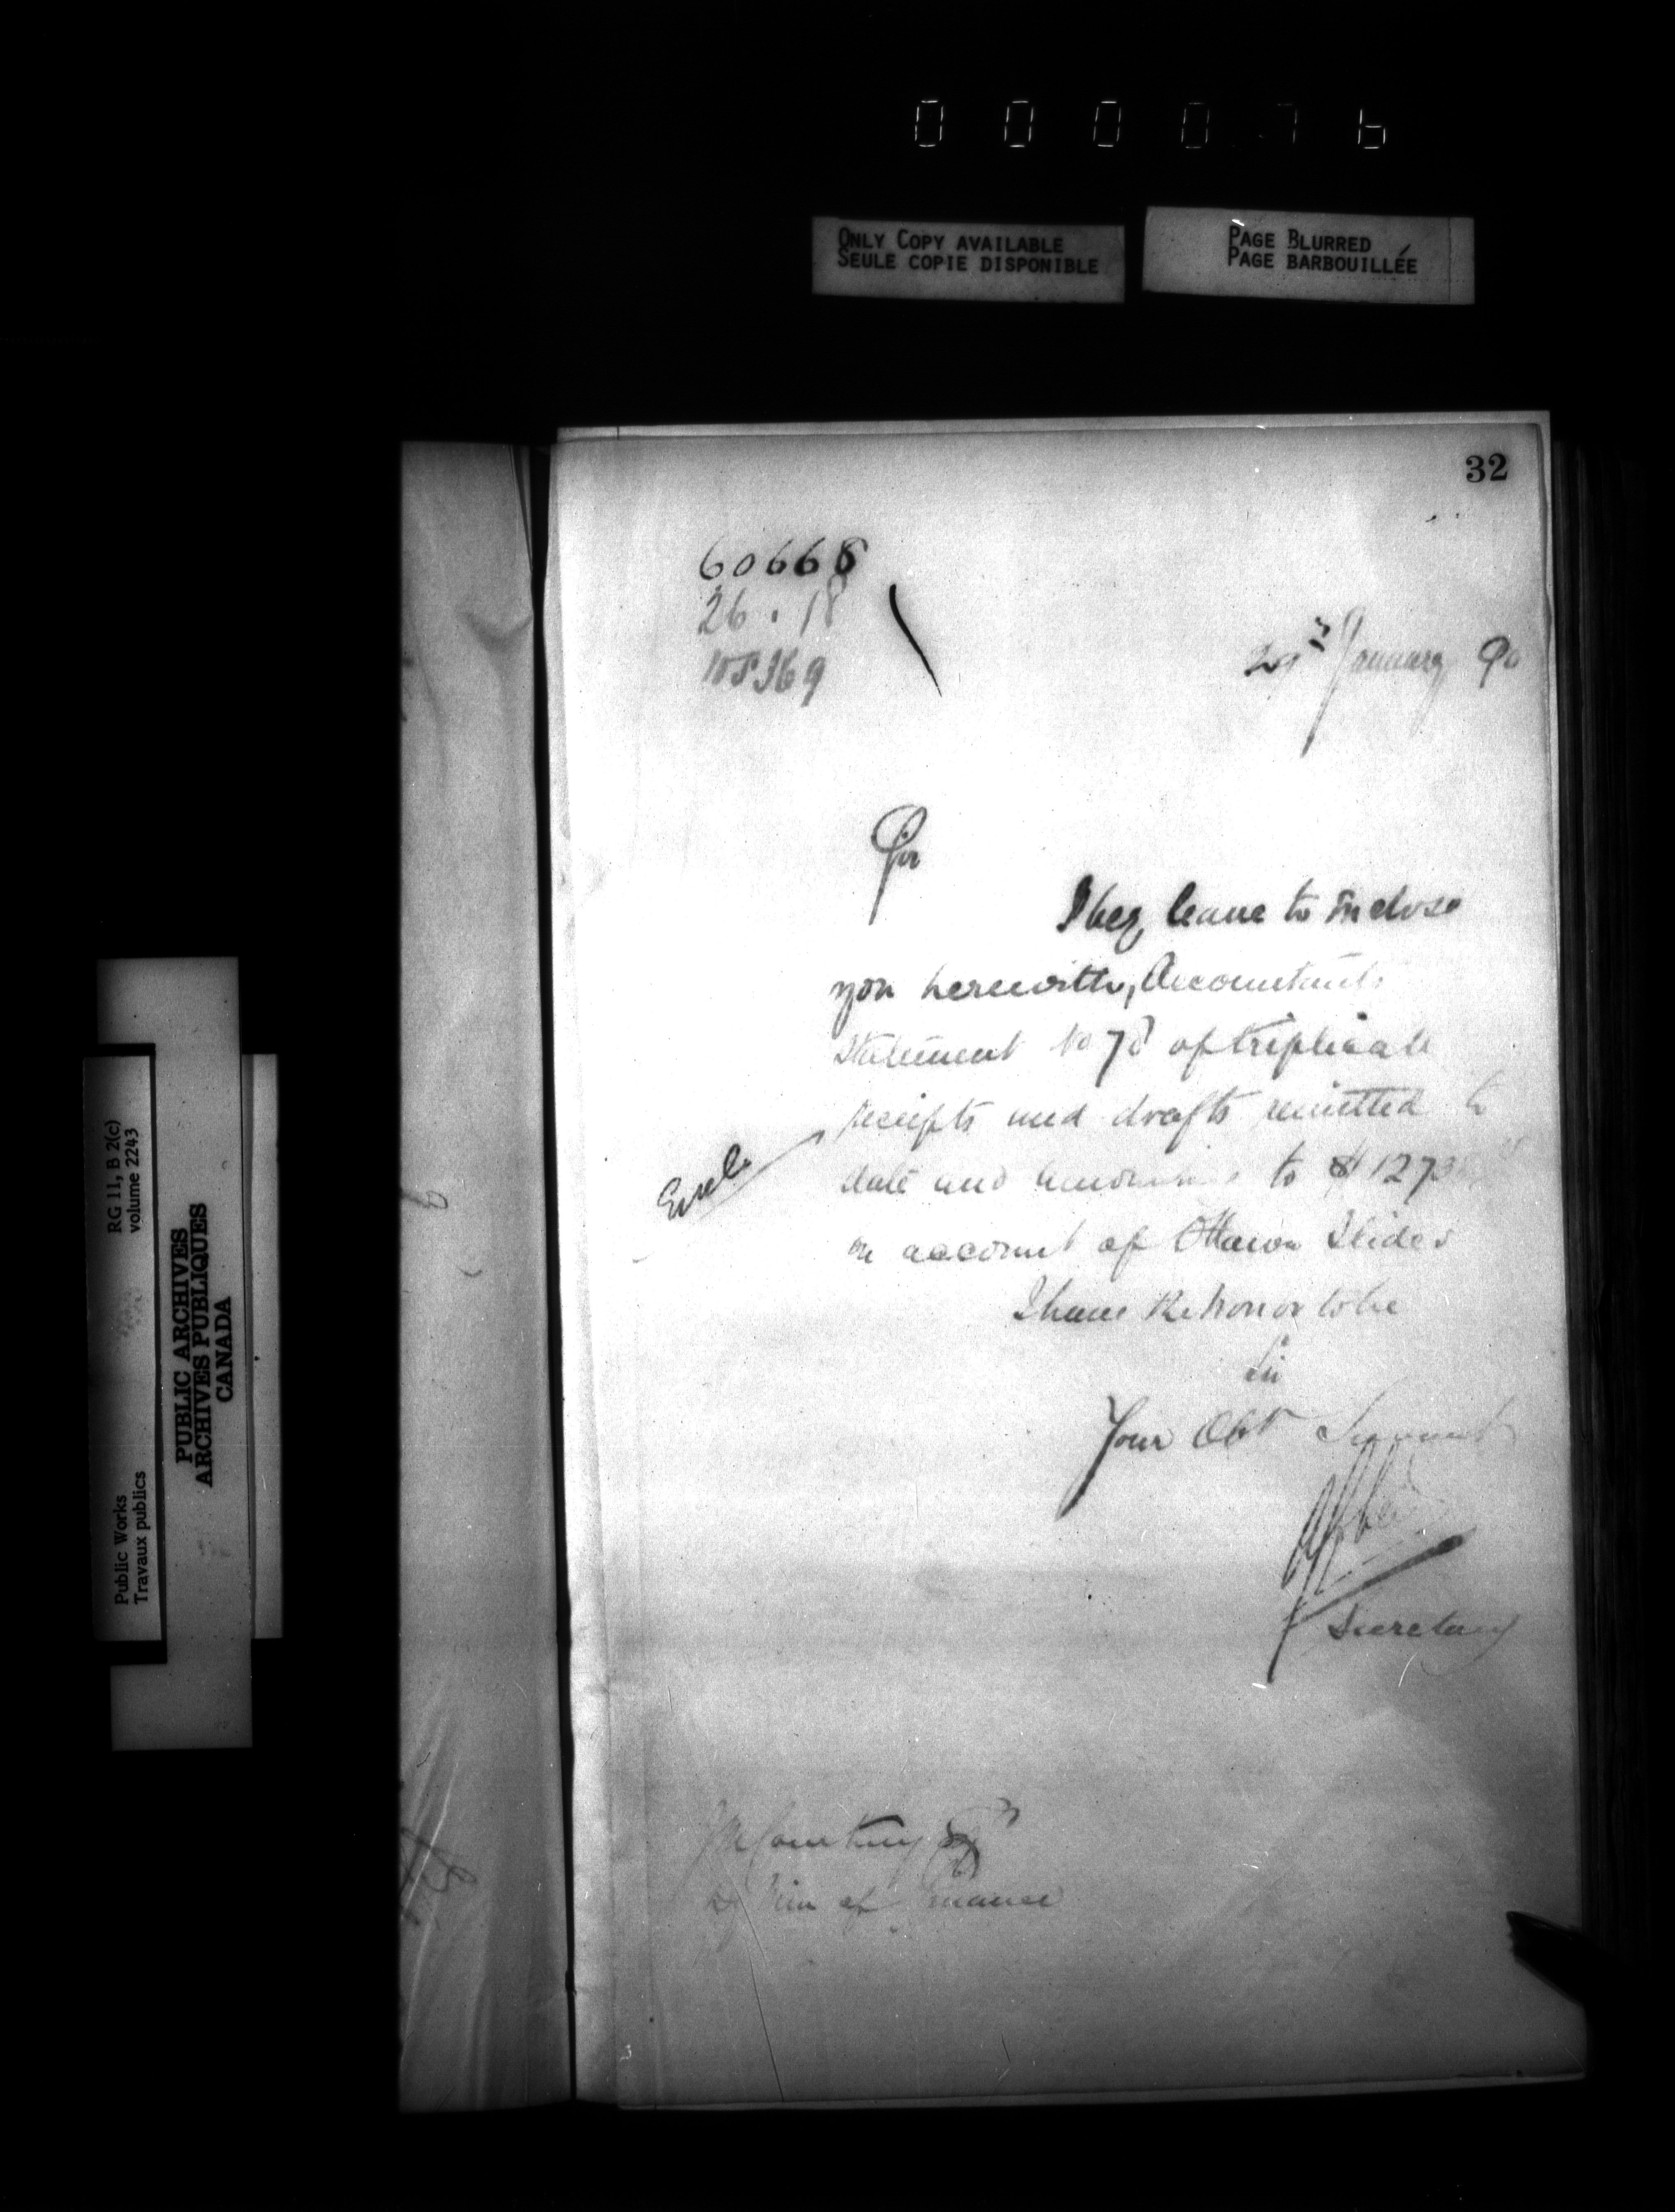 0 0 0 0 7 6
ONLY COPY AVAILABLE
SEULE COPIE DISPONIBLE
PAGE BLURRED
PAGE BARBOUILLÉE
32
60668
26 . 18
105369
January 90
Sir
I beg leave to inclose
you herewith, Accountants
Statement No 78 of triplicate
receipts and drafts remitted to
Encl.
date and amounting to $1273
on account of Ottawa Slides
I have the honor to be
Sir
Your Obt Servant
Secretary
J M Courtney Esq
Dy Min of Finance
RG 11, B 2(c)
volume 2243
Public Works
Travaux publics
PUBLIC ARCHIVES
ARCHIVES PUBLIQUES
CANADA